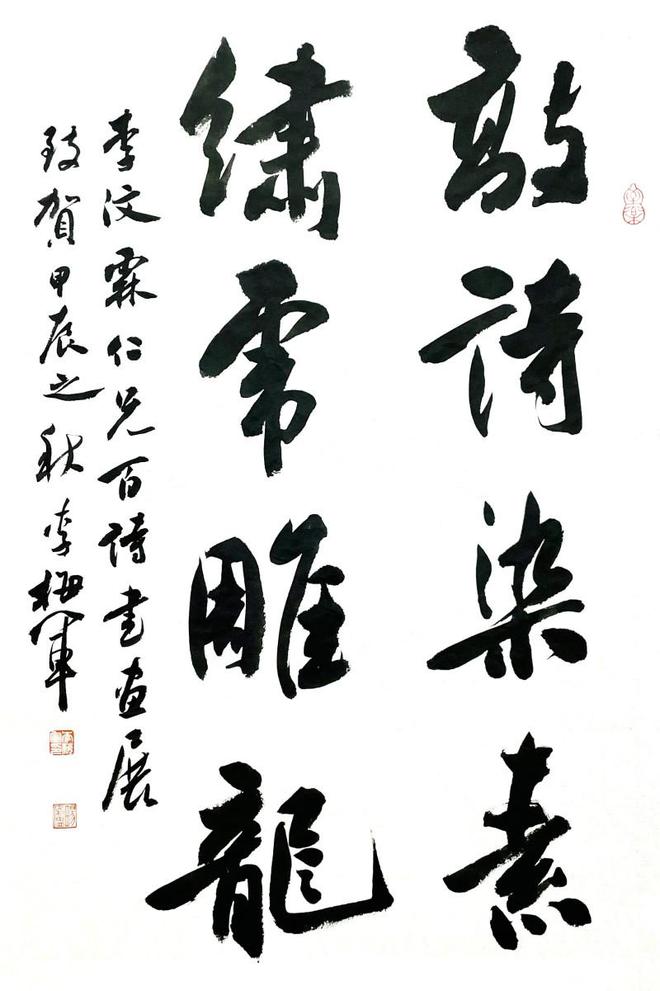 敲詩染素
繡帚雕龍
李汶霖仁兄百詩書畫展
致賀甲辰之秋李梅軍